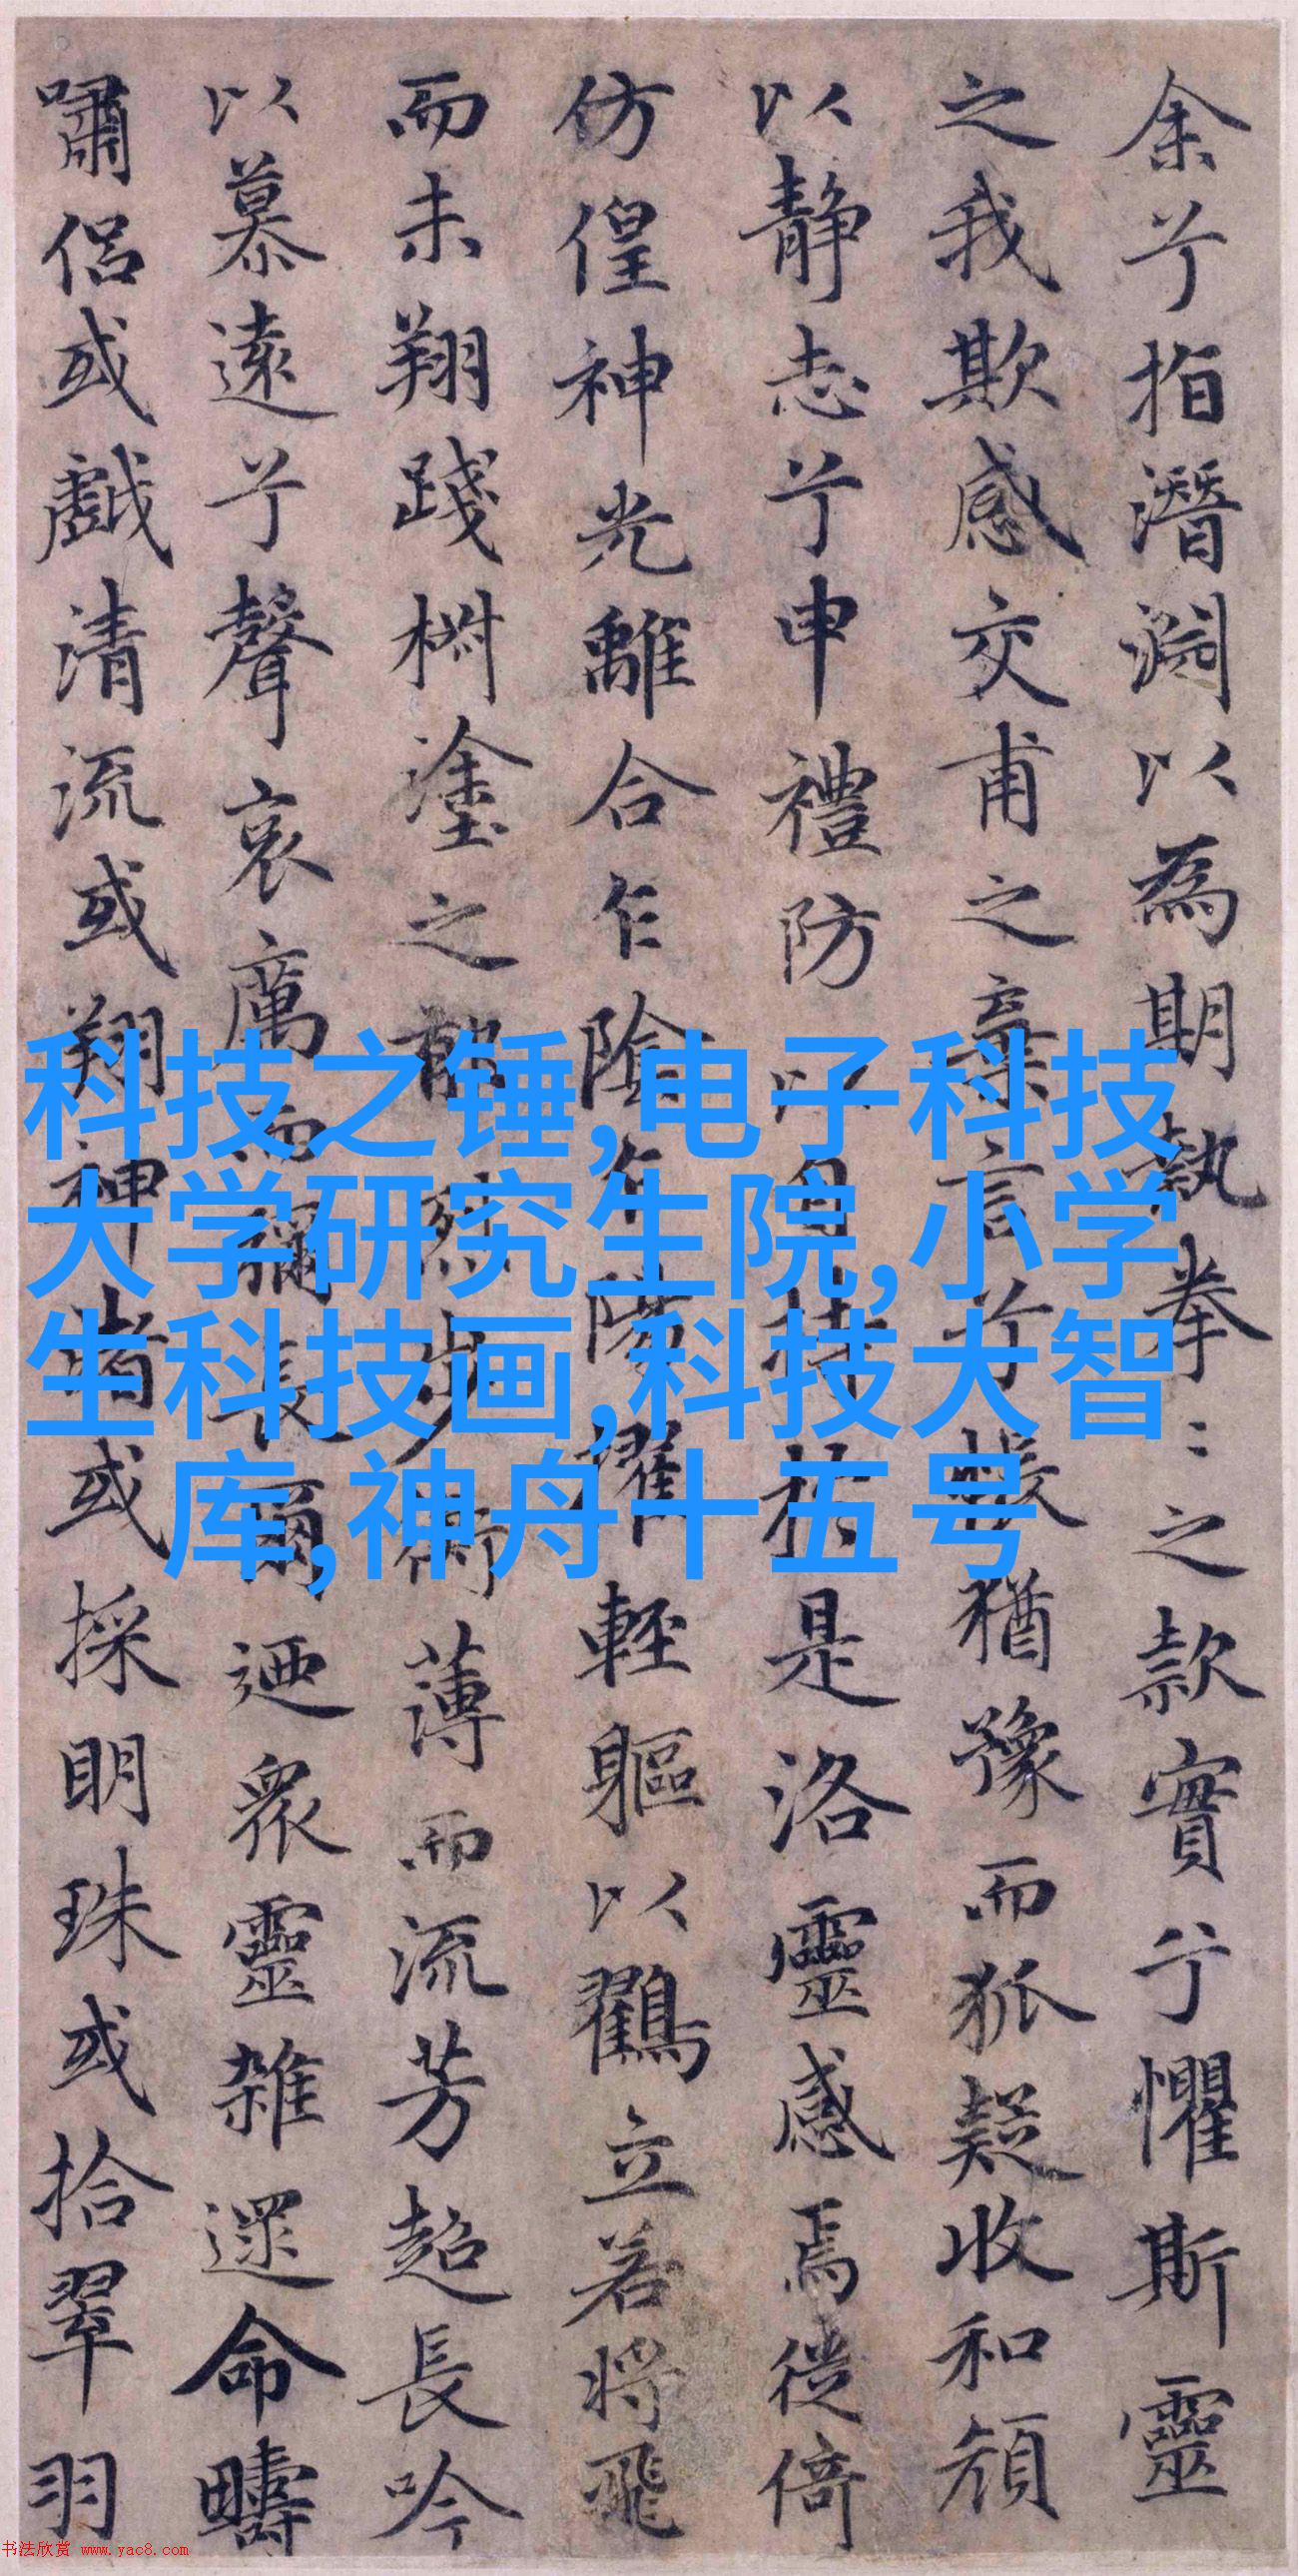 余兮指潛淵以為期執拳〻之款實兮懼斯靈
之我欺感交甫之棄言兮悵猶豫而狐疑收和顏
以靜志兮申禮防以自持於是洛靈感焉徙倚
仿偟神光離合乍陰乍陽擢輕軀以鶴立若將飛
而未翔踐椒塗之郁烈步蘅薄而流芳超長吟
以慕遠兮聲哀厲而彌長爾迺眾靈雜遝命疇
嘯侶或戲清流或翔神渚或採明珠或拾翠羽
科技之锤,电子科技
大学研究生院,小学
生科技画,科技大智
库,神舟十五号
书法欣赏 www.yac8.com